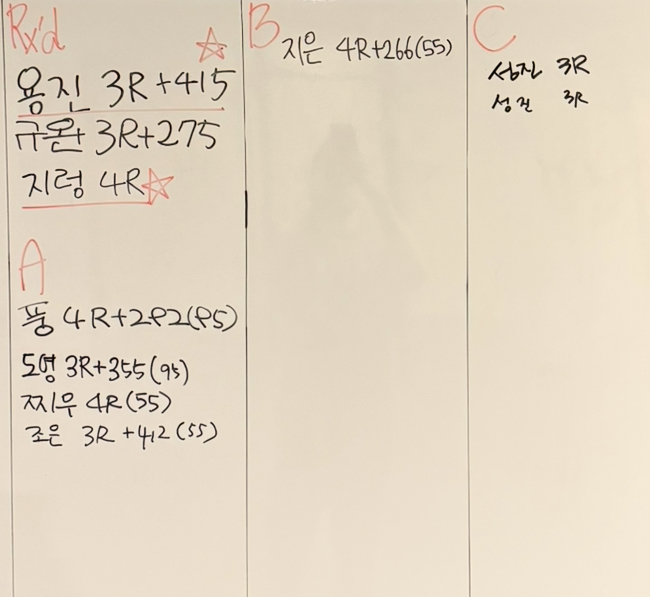 Rx'd
용진 3R+415
규완 3R+275
지령 4R
A
풍 4R+292(95)
도영 3R+355(95)
찌우 4R(55)
조은 3R+412(55)
B
지은 4R+266(55)
C
성진 3R
성진 3R